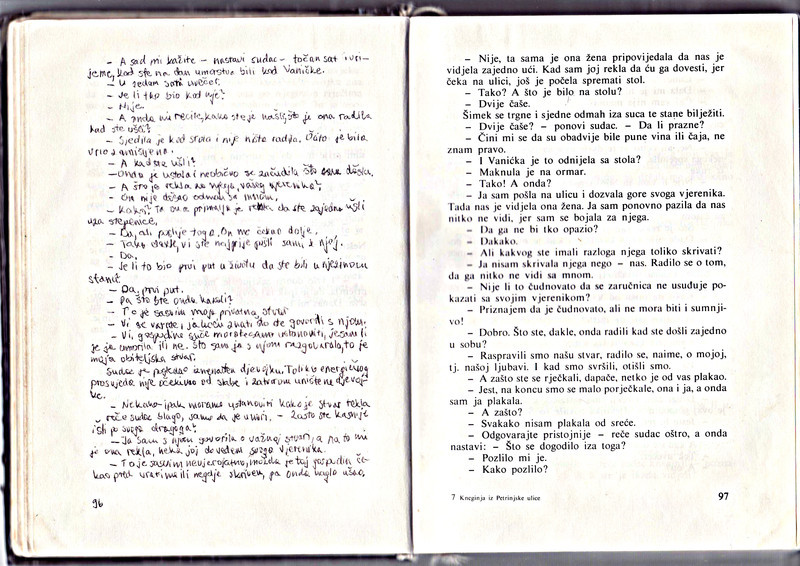 – A sad mi kažite – nastavi sudac – točan sat i vri-
jeme, kad ste na dan umorstva bili kod Vaničke.
– U sedam sati uvečer.
– Je li tko bio kod nje?
– Nije.
– A onda mi recite, kako ste je našli, što je ona radila
kad ste ušli?
– Sjedila je kod stola i nije ništa radila. Zato je bila
vrlo zamišljena.
– A kad ste ušli?
– Onda je ustala i neobično se začudila što sam došla.
– A što je rekla na vašega vjerenika?
– On nije došao odmah sa mnom.
– Kako? Ta ova primalja je rekla da ste zajedno ušli
uza stepenice.
– Da, ali poslije toga. On me čekao dolje.
– Tako dakle, vi ste najprije pošli sami k njoj.
– Da.
– Je li to bio prvi put u životu da ste bili u njezinom
stanu?
– Da, prvi put.
– Pa što ste onda kazali?
– To je sasvim moja privatna stvar.
– Vi se varate, ja hoću znati što ste govorili s njom.
– Vi, gospodine suče morate samo ustanoviti, jesam li
je ja umorila ili ne. Što sam ja s njom razgovarala, to je
moja obiteljska stvar.
Sudac je pogledao iznenađen djevojku. Toliko energičnog
prosvjeda nije očekivao od slabe i zatvorom uništene djevoj-
ke.
– Nekako ipak moramo ustanoviti kako je stvar tekla
– reče sudac blago, samo da je umiri. – Zašto ste kasnije
išli po svoga dragoga?
– Ja sam s njom govorila o važnoj stvari, a na to mi
je ona rekla, neka joj dovedem svoga vjerenika.
– To je sasvim nevjerojatno, možda je taj gospodin če-
kao pred vratima ili negdje skriven, pa onda naglo ušao.
96
– Nije, ta sama je ona žena pripovijedala da nas je
vidjela zajedno ući. Kad sam joj rekla da ću ga dovesti, jer
čeka na ulici, još je počela spremati stol.
– Tako? A što je bilo na stolu?
– Dvije čaše.
Šimek se trgne i sjedne odmah iza suca te stane bilježiti.
– Dvije čaše? – ponovi sudac. – Da li prazne?
– Čini mi se da su obadvije bile pune vina ili čaja, ne
znam pravo.
– I Vanićka je to odnijela sa stola?
– Maknula je na ormar.
– Tako! A onda?
– Ja sam pošla na ulicu i dozvala gore svoga vjerenika.
Tada nas je vidjela ona žena. Ja sam ponovno pazila da nas
nitko ne vidi, jer sam se bojala za njega.
– Da ga ne bi tko opazio?
– Dakako.
– Ali kakvog ste imali razloga njega toliko skrivati?
– Ja nisam skrivala njega nego – nas. Radilo se o tom,
da ga nitko ne vidi sa mnom.
– Nije li to čudnovato da se zaručnica ne usuđuje po-
kazati sa svojim vjerenikom?
– Priznajem da je čudnovato, ali ne mora biti i sumnji-
vo!
– Dobro. Što ste, dakle, onda radili kad ste došli zajedno
u sobu?
– Raspravili smo našu stvar, radilo se, naime, o mojoj,
tj. našoj ljubavi. I kad smo svršili, otišli smo.
– A zašto ste se rječkali, dapače, netko je od vas plakao.
– Jest, na koncu smo se malo porječkale, ona i ja, a onda
sam ja plakala.
– A zašto?
– Svakako nisam plakala od sreće.
– Odgovarajte pristojnije – reče sudac oštro, a onda
nastavi: – Što se dogodilo iza toga?
– Pozlilo mi je.
– Kako pozlilo?
7 Kneginja iz Petrinjske ulice
97